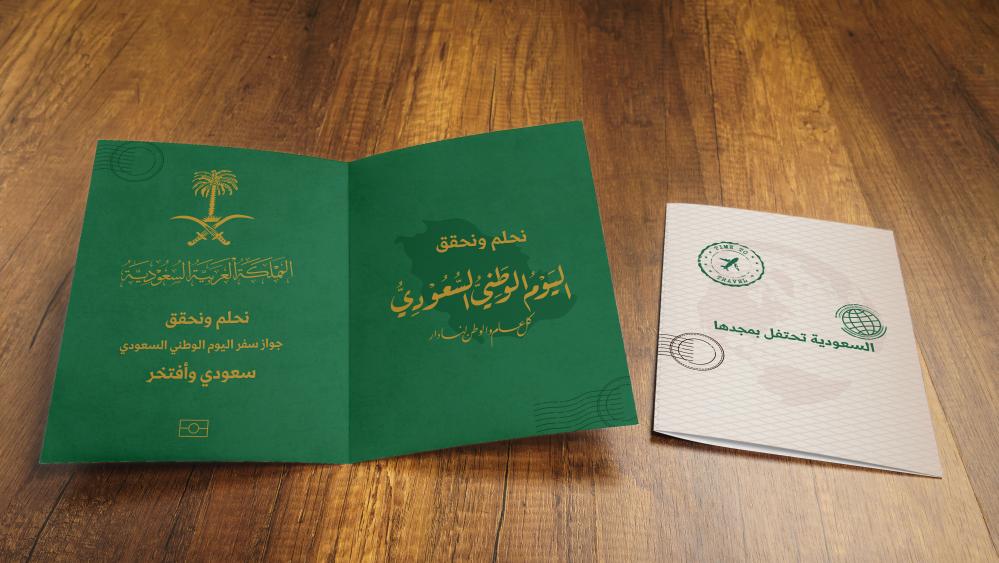 المملكة العربية السعودية
نحلم ونحقق
جواز سفر اليوم الوطني السعودي
سعودي وأفتخر
نحلم ونحقق
اليَوْمُ الوَطَنِيُّ السُّعُوْدِيُّ
كل علم والوطن لنا دار
TIME TO
TRAVEL
السعودية تحتفل بمجدها